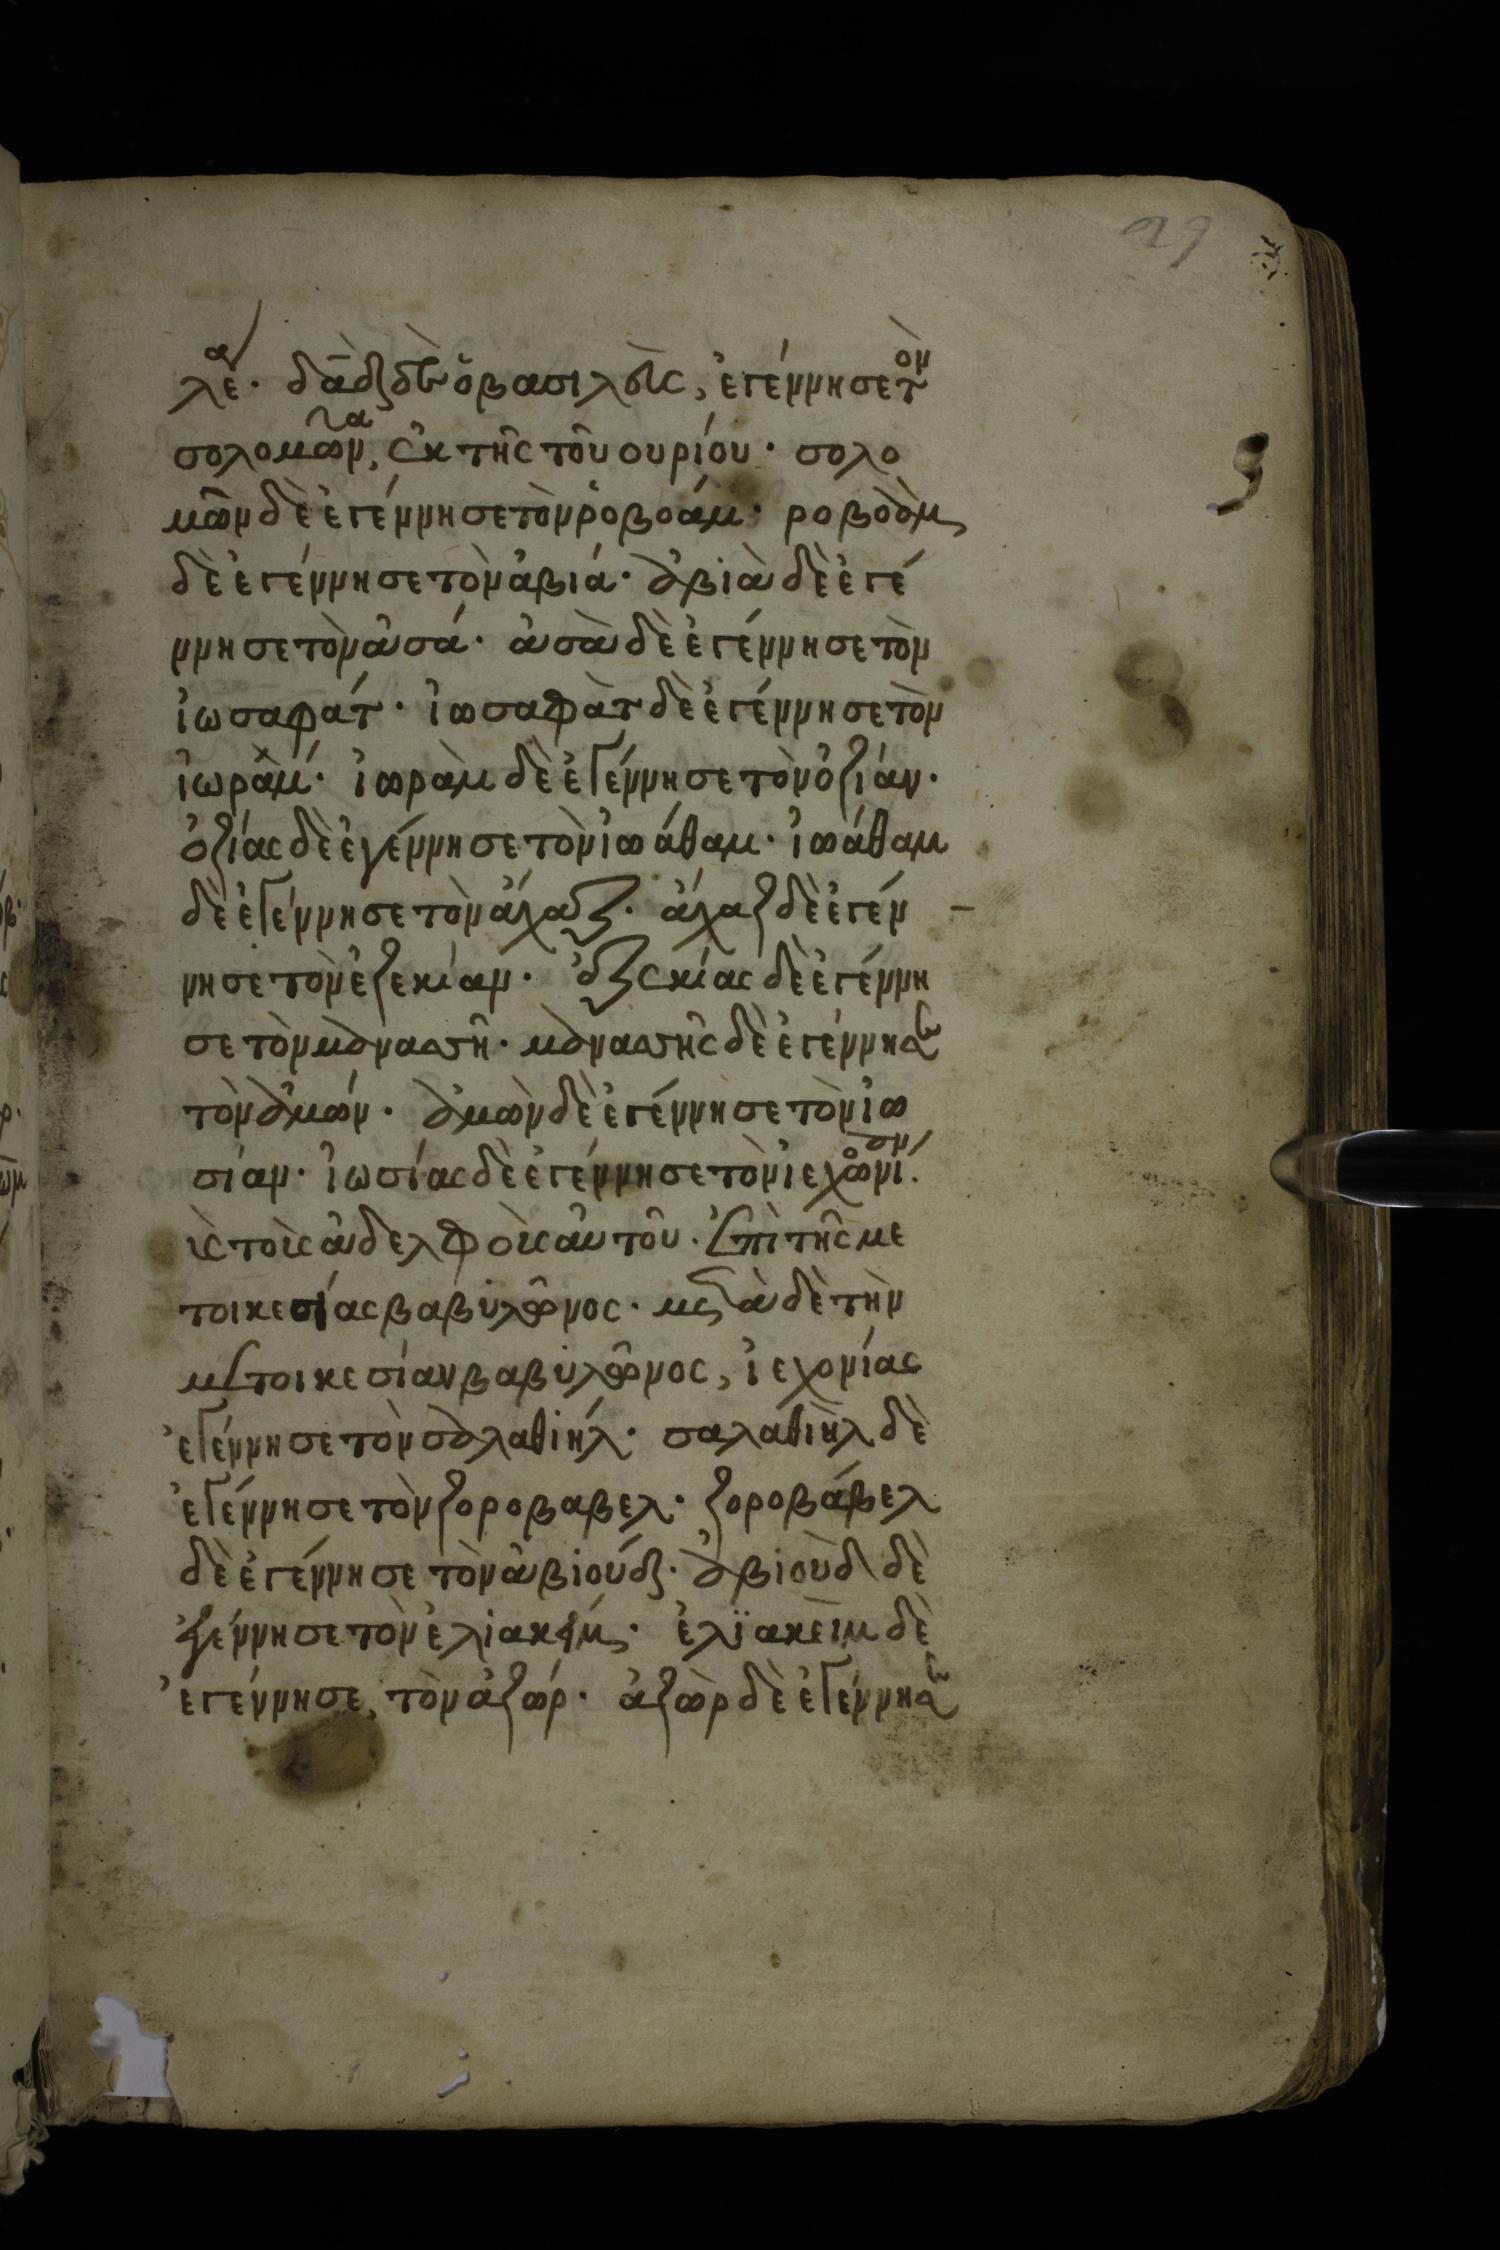 29
λέα. δᾱδ δὲ ὁ βασιλεὺς, ἐγέννησε τὸν
σολομῶντα, ἐκ τῆς τοῦ ουρίου. σολο
μῶν δὲ ἐγέννησε τὸν ῥοβοάμ. ροβοὰμ
δὲ ἐγέννησε τὸν ἀβιά. ἀβιὰ δὲ ἐγέ
ννησε τὸν ἀσά. ἀσὰ δὲ ἐγέννησε τὸν
ἰωσαφάτ. ἰωσαφὰτ δὲ ἐγέννησε τὸν
ἰωράμ. ἰωρὰμ δὲ ἐγέννησε τὸν ὀζιάν.
ὀζίας δὲ ἐγέννησε τὸν ἰωάθαμ. ἰωάθαμ
δὲ ἐγέννησε τὸν ἄχαζ. ἄχαζ δὲ ἐγέν
νησε τὸν ἐζεκίαν. ἐζεκίας δὲ ἐγέννη
σε τὸν μανασσῆ. μανασσῆς δὲ ἐγέννησε
τὸν ἀμών. ἀμὼν δὲ ἐγέννησε τὸν ἰω
σίαν. ἰωσίας δὲ ἐγέννησε τὸν ἰεχωνίαν
κὶ τοὺς ἀδελφοὺς αὐτοῦ. ἐπὶ τῆς με
τοικεσίας βαβυλῶνος. μετὰ δὲ τὴν
μετοικεσίαν βαβυλῶνος, ἰεχονίας
ἐγέννησε τὸν σαλαθιήλ. σαλαθιὴλ δὲ
ἐγέννησε τὸν ζοροβαβελ. ζοροβάβελ
δὲ ἐγέννησε τὸν ἀβιούδ. ἀβιοὺδ δὲ
ἐγέννησε τὸν ἐλιακείμ. ἐλϊακεὶμ δὲ
ἐγέννησε, τὸν ἀζώρ. ἀζὼρ δὲ ἐγέννησε